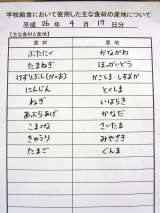 学校給食において使用した主な食材の産地について
平成 26 年 4 月 17 日分
【主な食材と産地】
食材 産地
ぶたにく かながわ
たまねぎ ほっかいどう
けずりぶし(かつお) かごしま・しずおか
にんじん とくしま
ねぎ いばらき
あぶらあげ かなだ
こまつな さいたま
きゅうり みやざき
たまご ぐんま